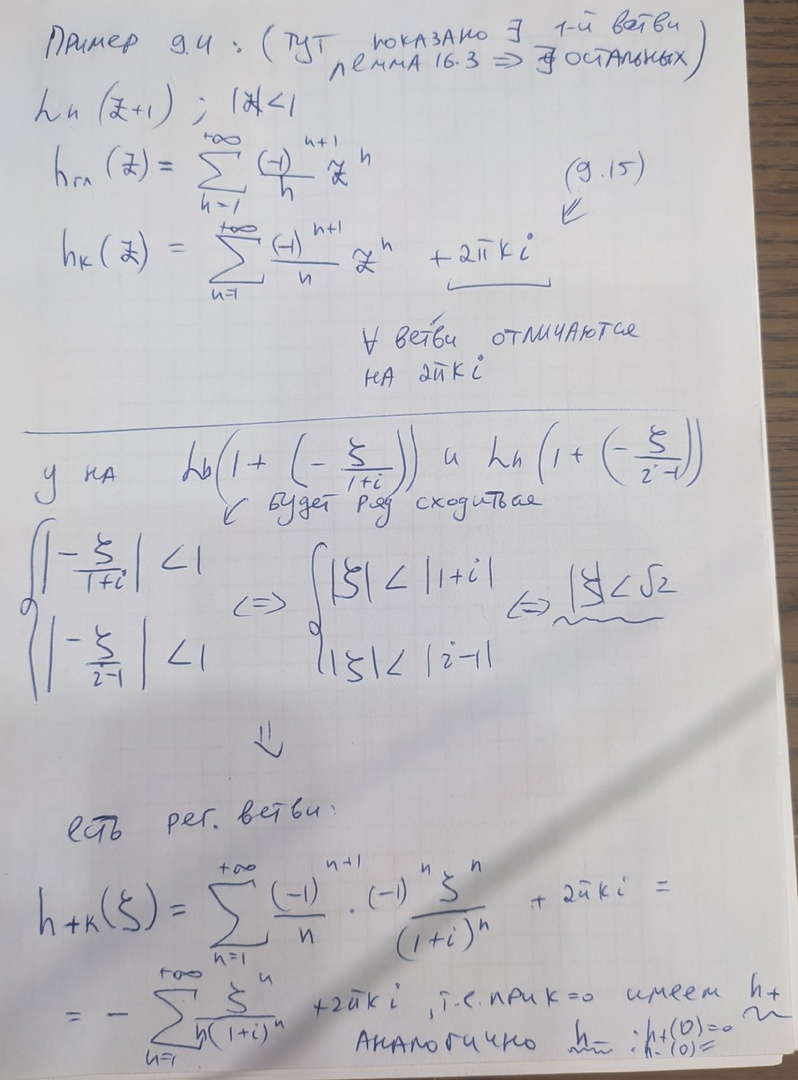 Пример 9.4 : (тут показано ∃ 1-й ветви
лемма 16.3 => ∃ остальных)
Ln (z+1) ; |z|<1
hгл (z) = ∑_{n=1}^{+∞} (-1)^{n+1}/n z^n
(9.15)
hк (z) = ∑_{n=1}^{+∞} (-1)^{n+1}/n z^n + 2πki
∀ ветви отличаются
на 2πki
у на Ln(1 + (- ξ/(1+i))) и Ln (1 + (- ξ/(i-1)))
будет ряд сходиться
{ |- ξ/(1+i)| < 1 <=> { |ξ| < |1+i| <=> |ξ| < √2
|- ξ/(i-1)| < 1 |ξ| < |i-1|
⇓
есть рег. ветви:
h+к(ξ) = ∑_{n=1}^{+∞} (-1)^{n+1}/n · (-1)^n ξ^n/(1+i)^n + 2πki =
= - ∑_{n=1}^{+∞} ξ^n/(n(1+i)^n) + 2πki , т.е. при к=0 имеем h+
аналогично h- : h+(0)=0
: h-(0)=